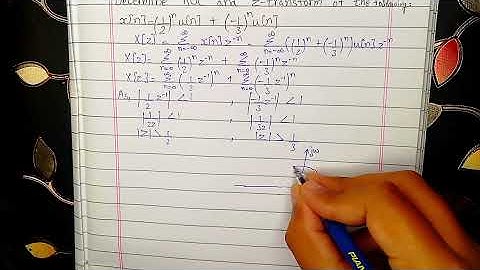 Determine ROC and Z-transform of the following:
x[n]=(1/2)^n u[n] + (-1/3)^n u[n]
X[z]= ∞Σn=-∞ x[n] z^-n = ∞Σn=-∞ ((1/2)^n + (-1/3)^n) u[n] z^-n
X[z]= ∞Σn=0 (1/2)^n z^-n + ∞Σn=0 (-1/3)^n z^-n
X[z]= ∞Σn=0 (1/2 z^-1)^n + ∞Σn=0 (-1/3 z^-1)^n
As, |1/2 z^-1| < 1 , |-1/3 z^-1| < 1
|1/2z| < 1 , |1/3z| < 1
|z| > 1/2 , |z| > 1/3
jω
PIANO